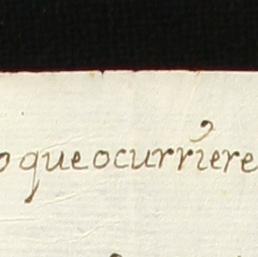 o que ocurriere